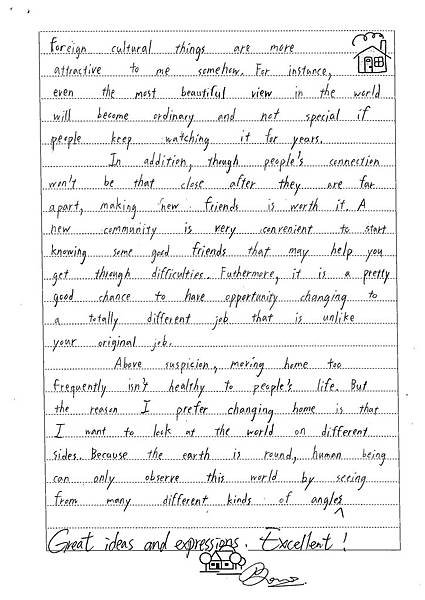 Foreign cultural things are more
attractive to me somehow. For instance,
even the most beautiful view in the world
will become ordinary and not special if
people keep watching it for years.
In addition, though people's connection
won't be that close after they are far
apart, making new friends is worth it. A
new community is very convenient to start
knowing some good friends that may help you
get through difficulties. Futhermore, it is a pretty
good chance to have opportunity changing to
a totally different job that is unlike
your original job.
Above suspicion, moving home too
frequently isn't healthy to people's life. But
the reason I prefer changing home is that
I want to look at the world on different
sides. Because the earth is round, human being
can only observe this world by seeing
from many different kinds of angles
Great ideas and expressions. Excellent!